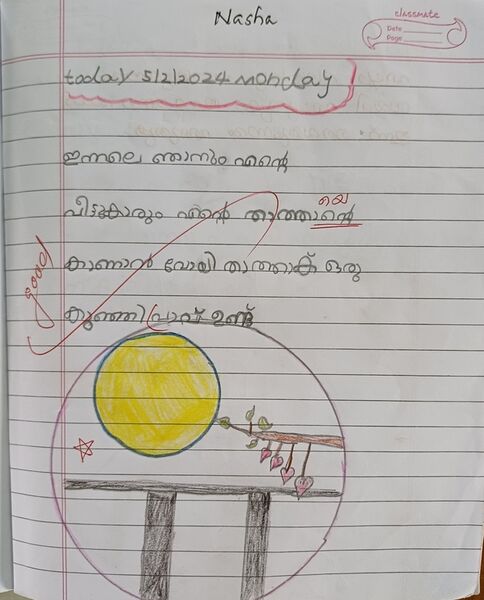 Nasha
classmate
Date
Page
today 5/2/2024 Monday
ഇന്നലെ ഞാനും എന്റെ
യെ
വീട്ടുകാരും എന്റെ താത്താന്റെ
കാണാൻ പോയി താത്താക് ഒരു
good
കുഞ്ഞി പ്രാവ് ഉണ്ട്